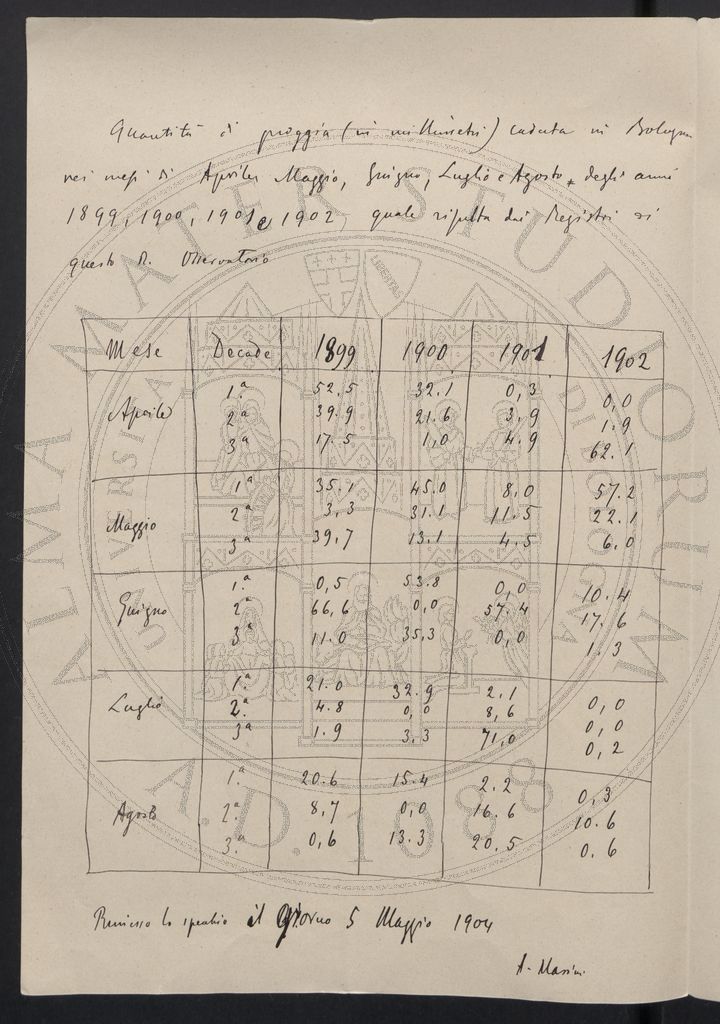 Quantità di pioggia (in millimetri) caduta in Bologna
nei mesi di Aprile, Maggio, Giugno, Luglio e Agosto, degli anni
1899, 1900, 1901 e 1902, quale risulta dai Registri di
questo R. Osservatorio
Mese Decade 1899 1900 1901 1902
Aprile 1.a 52.5 32.1 0,3 0,0
2.a 39.9 21.6 3,9 1.9
3.a 17.5 1,0 4.9 62.1
Maggio 1.a 35.1 45.0 8,0 57.2
2.a 3,3 31.1 11.5 22.1
3.a 39,7 13.1 4,5 6,0
Giugno 1.a 0,5 53.8 0,0 10.4
2.a 66,6 0,0 57.4 17.6
3.a 11.0 35,3 0,0 1.3
Luglio 1.a 21.0 32.9 2.1 0,0
2.a 4.8 0,0 8,6 0,0
3.a 1.9 3,3 71,0 0,2
Agosto 1.a 20.6 15.4 2.2 0,3
2.a 8,7 0,0 16.6 10.6
3.a 0,6 13.3 20.5 0.6
Rimesso lo specchio il giorno 5 Maggio 1904
A. Masini
ALMA MATER STUDIORUM
A.D. 1088
LIBERTAS